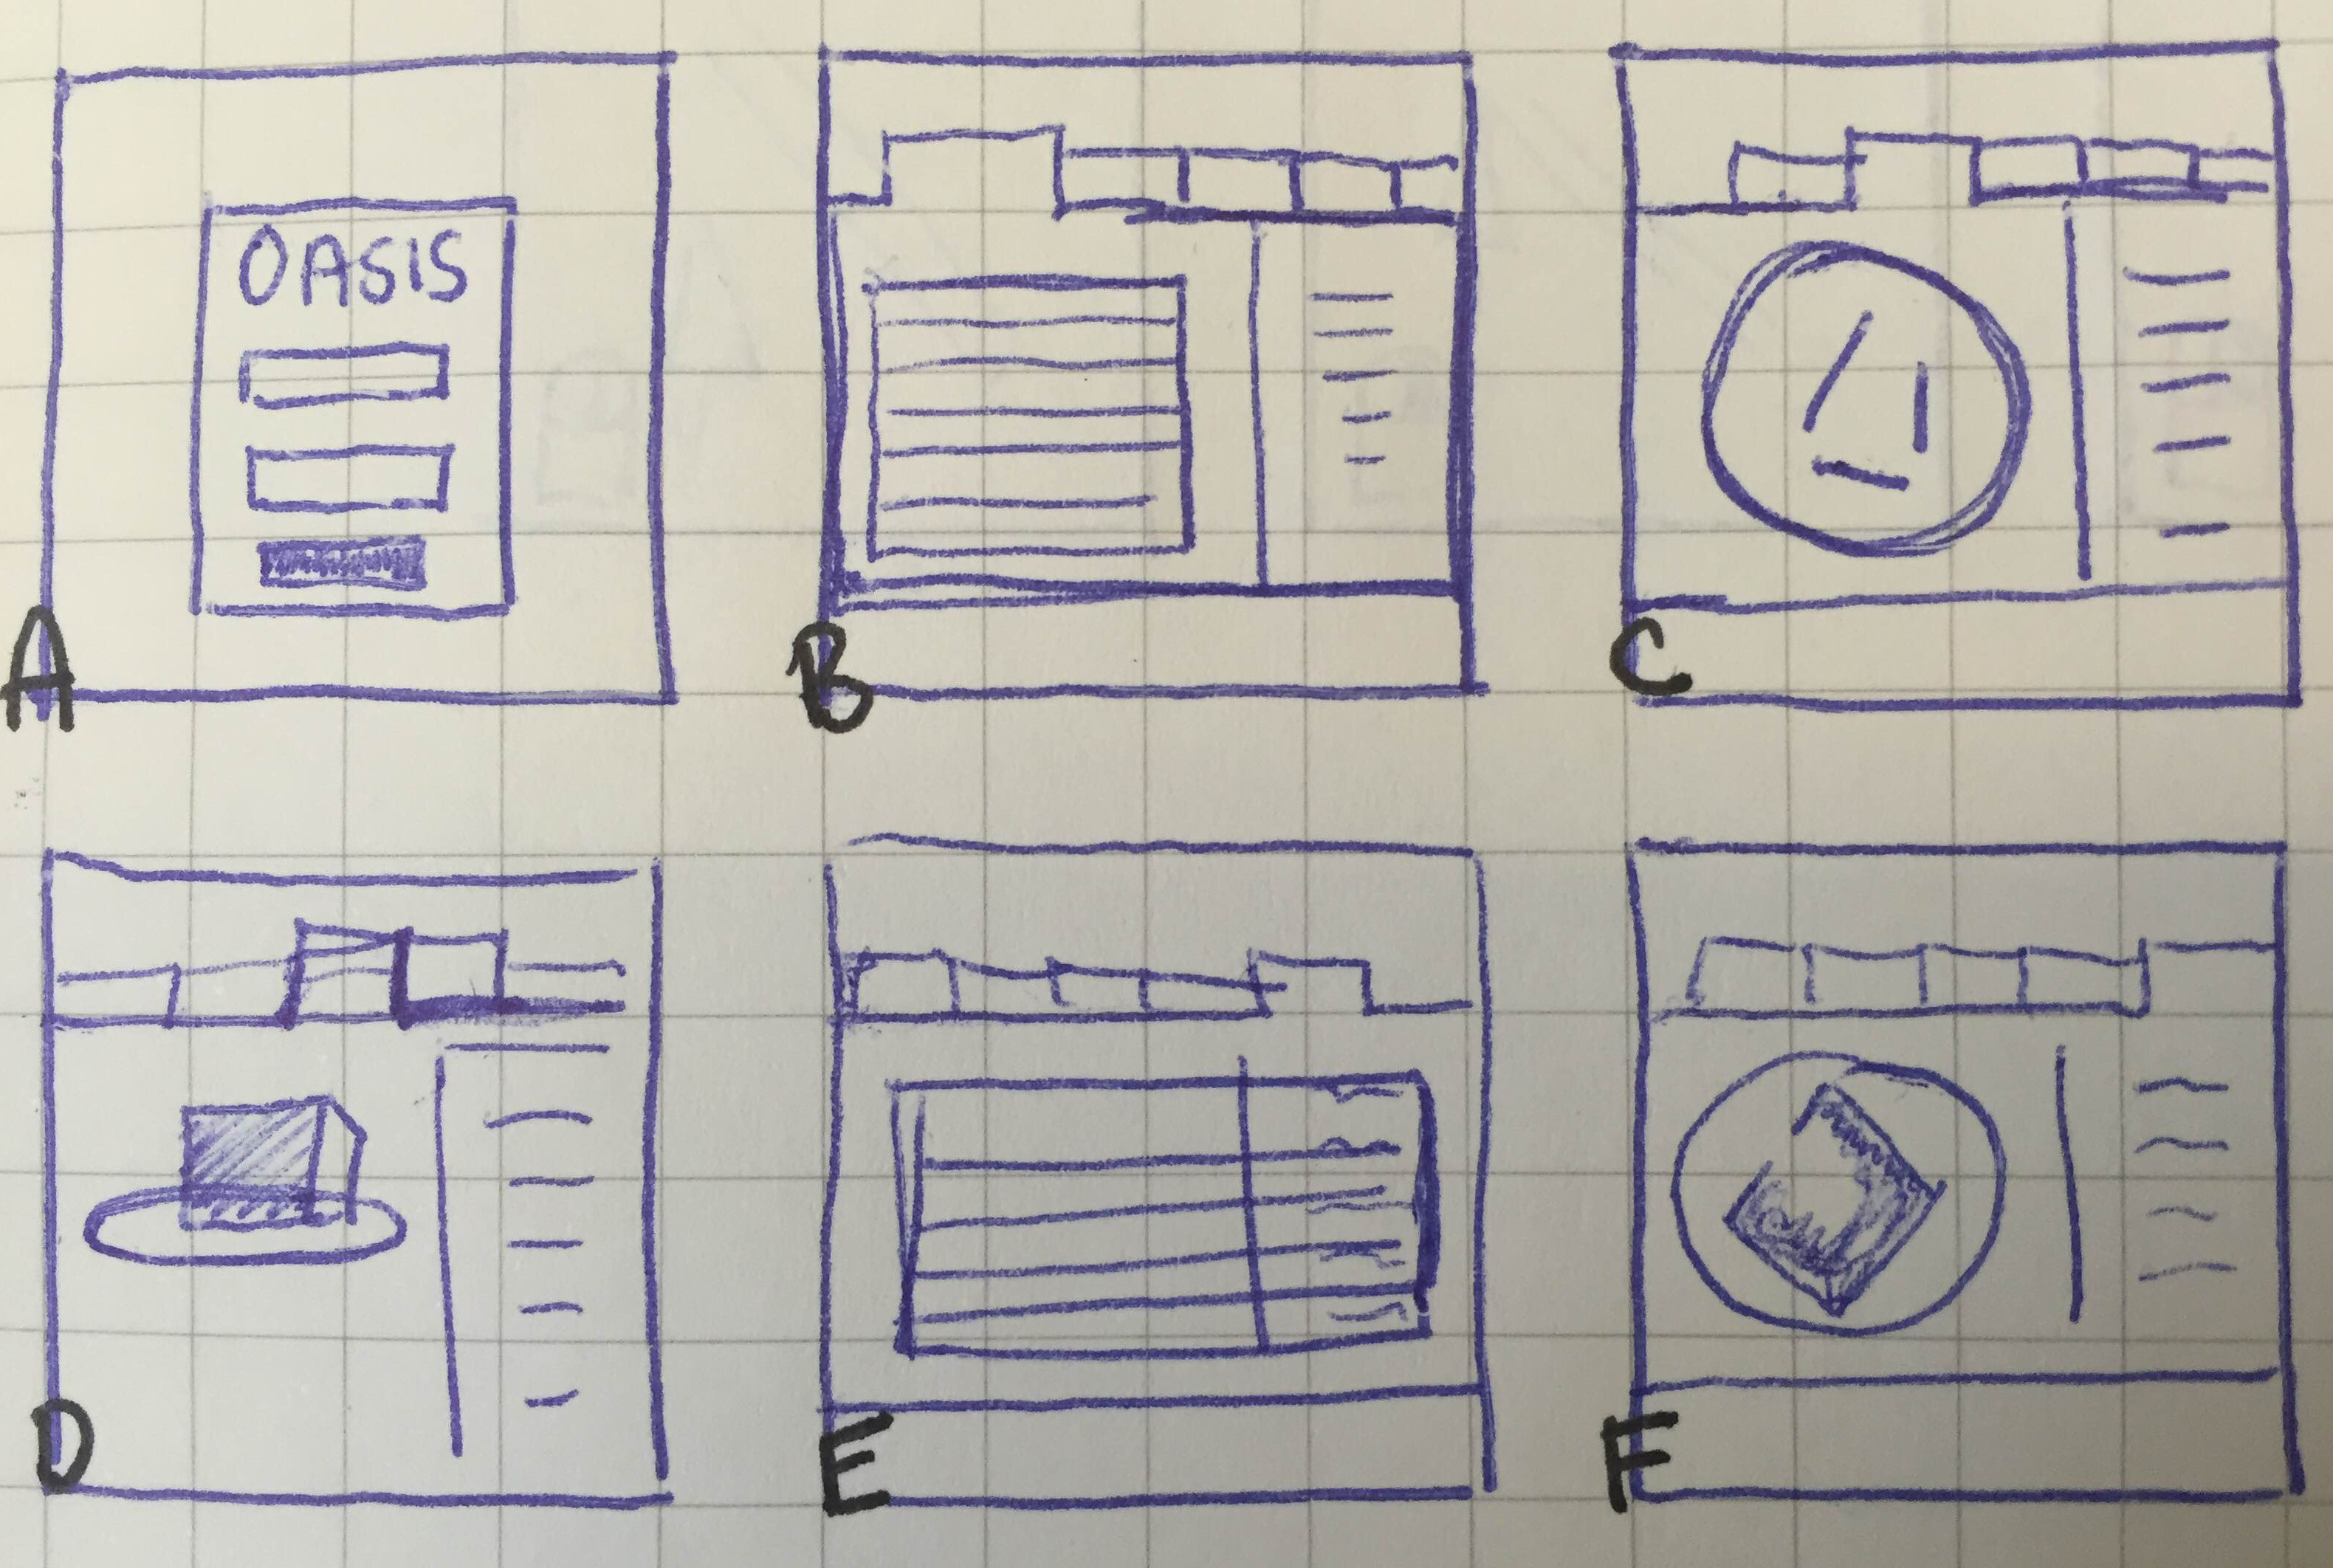 OASIS
A
B
C
D
E
F